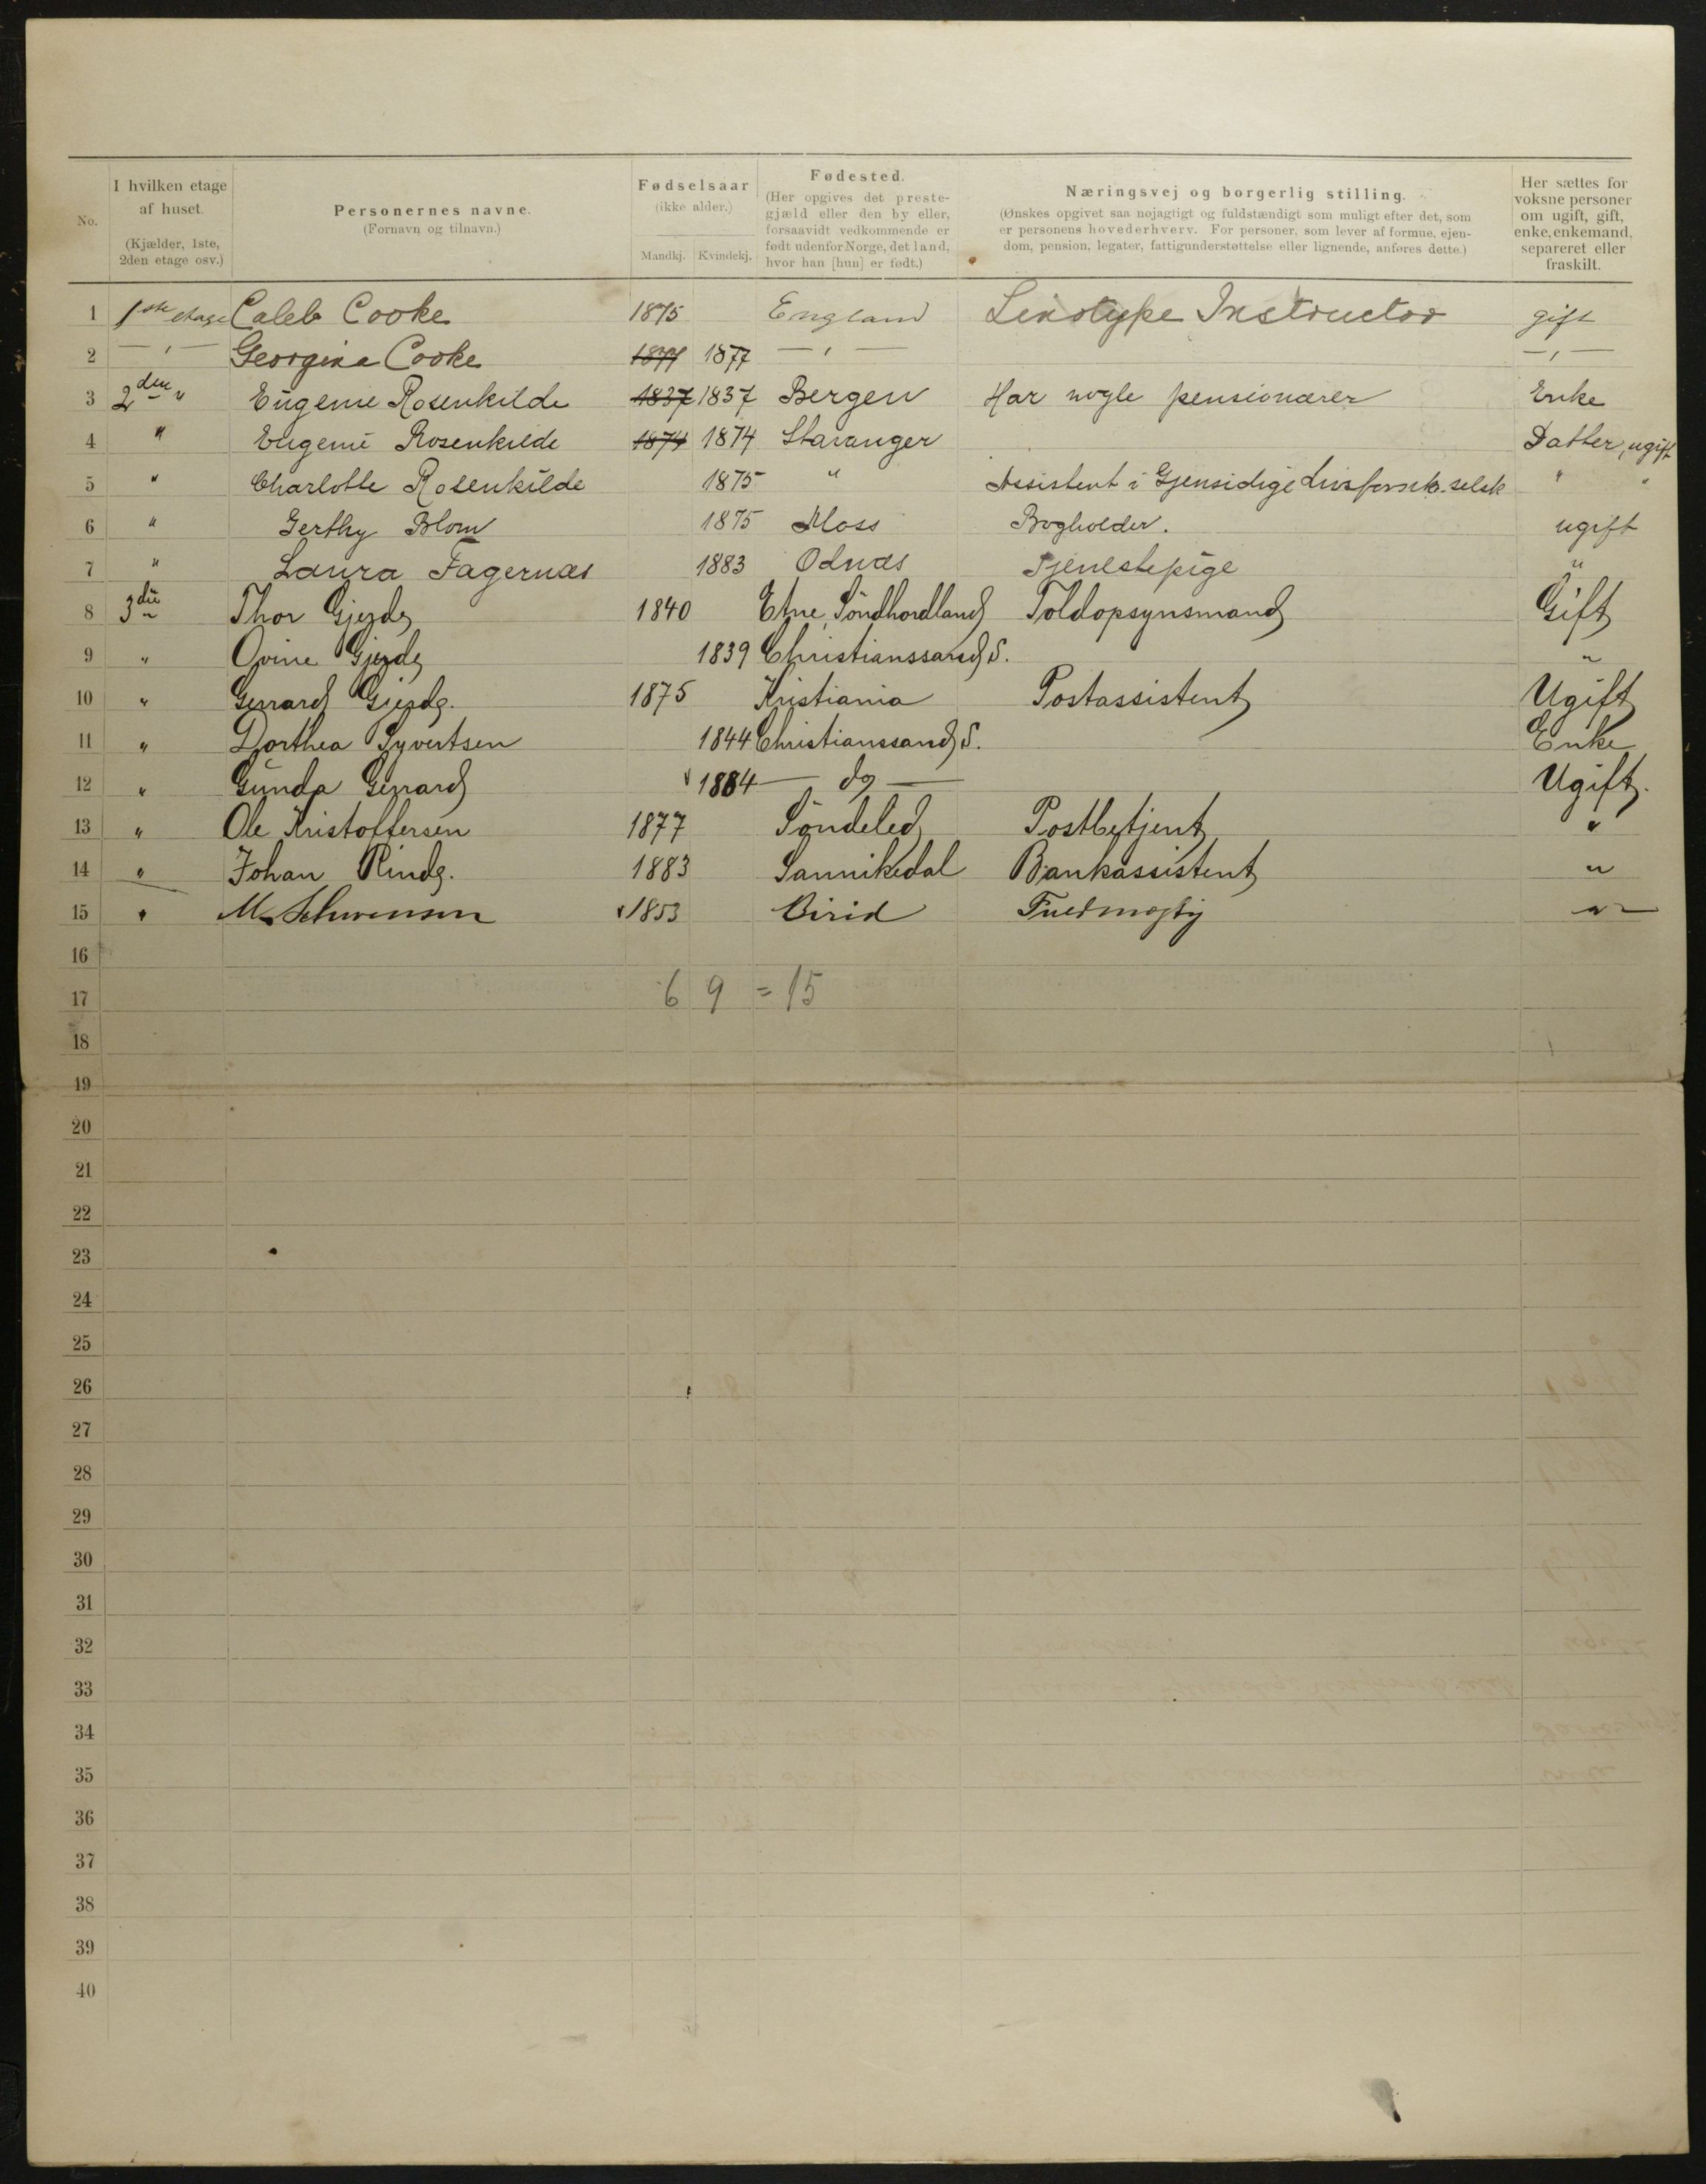 No.
I hvilken etage af huset. (Kjælder, 1ste, 2den etage osv.)
Personernes navne. (Fornavn og tilnavn.)
Fødselsaar (ikke alder.) Mandkj. Kvindekj.
Fødested. (Her opgives det prestegjæld eller den by eller, forsaavidt vedkommende er født udenfor Norge, det land, hvor han [hun] er født.)
Næringsvej og borgerlig stilling. (Ønskes opgivet saa nøjagtigt og fuldstændigt som muligt efter det, som er personens hovederhverv. For personer, som lever af formue, ejendom, pension, legater, fattigunderstøttelse eller lignende, anføres dette.)
Her sættes for voksne personer om ugift, gift, enke, enkemand, separeret eller fraskilt.
1 1ste etage Caleb Cooke 1875 England Linotype Instructor gift
2 — " — Georgina Cooke 1877 1877 — " — — " —
3 2den " Eugenie Rosenkilde 1837 1837 Bergen Har nogle pensionærer Enke
4 " Eugenie Rosenkilde 1874 1874 Stavanger Datter, ugift
5 " Charlotte Rosenkilde 1875 " Assistent i Gjensidige Livsforsik. selsk " "
6 " Gerthy Blom 1875 Moss Bogholder. ugift
7 " Laura Fagernæs 1883 Odnæs Tjenestepige "
8 3die " Thor Gjerde 1840 Etne, Söndhordland Toldopsynsmand Gift
9 " Ovine Gjerde 1839 Christianssand S. "
10 " Gerrard Gjerde. 1875 Kristiania Postassistent Ugift
11 " Dorthea Syvertsen 1844 Christianssand S. Enke
12 " Gunda Gerrard 1884 — do — Ugift.
13 " Ole Kristoffersen 1877 Söndeled Postbetjent "
14 " Johan Rinde. 1883 Sannikedal Bankassistent "
15 " M. 1853 Birid "
16
17 6 9 = 15
18
19
20
21
22
23
24
25
26
27
28
29
30
31
32
33
34
35
36
37
38
39
40